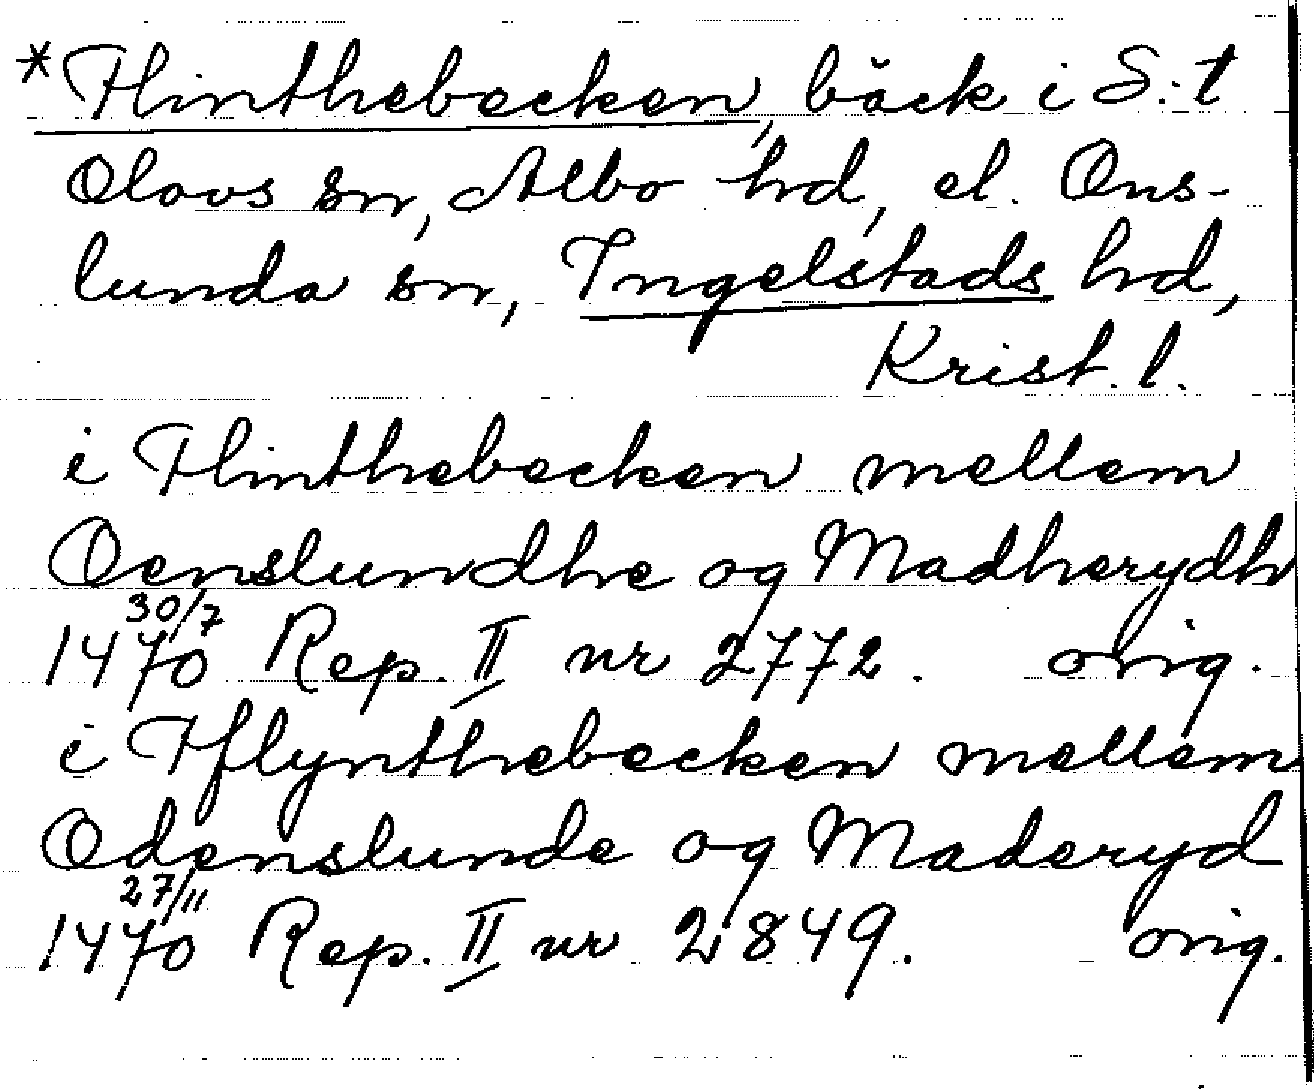 *Flinthebecken, bäck i S:t
Olovs sn, Albo hd, el. Ons-
lunda sn, Ingelstads hd,
Krist. l.
i Flinthebecken mellem
Oenslundhe og Madherydh
1470 30/7 Rep. II nr 2772. orig.
i Fflynthebecken mellem
Odenslunde og Maderyd
1470 27/11 Rep. II nr 2849. orig.